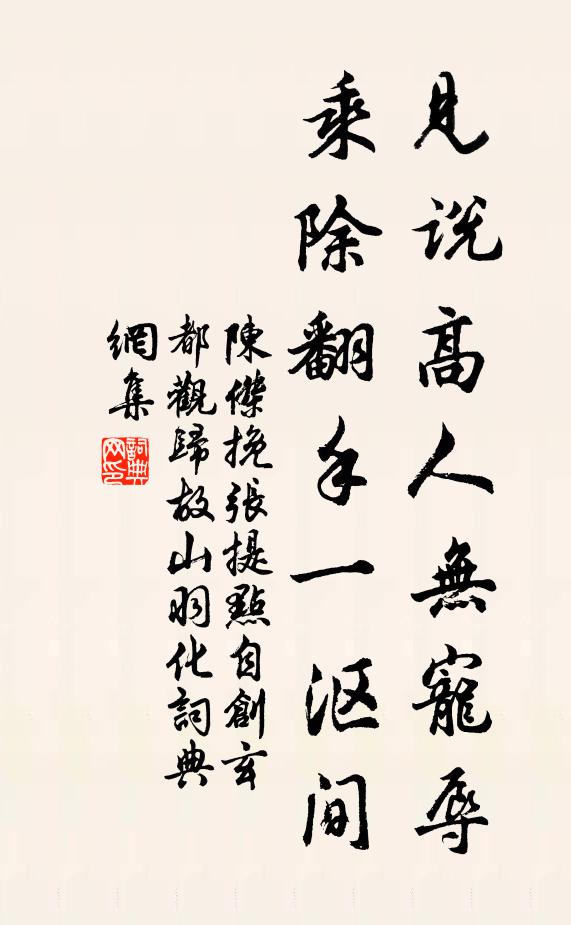 見説高人無寵辱
乘除翻手一漚间
陳傑挽張提點自創玄
都觀歸故山羽化詞典
網集
詞典
网印